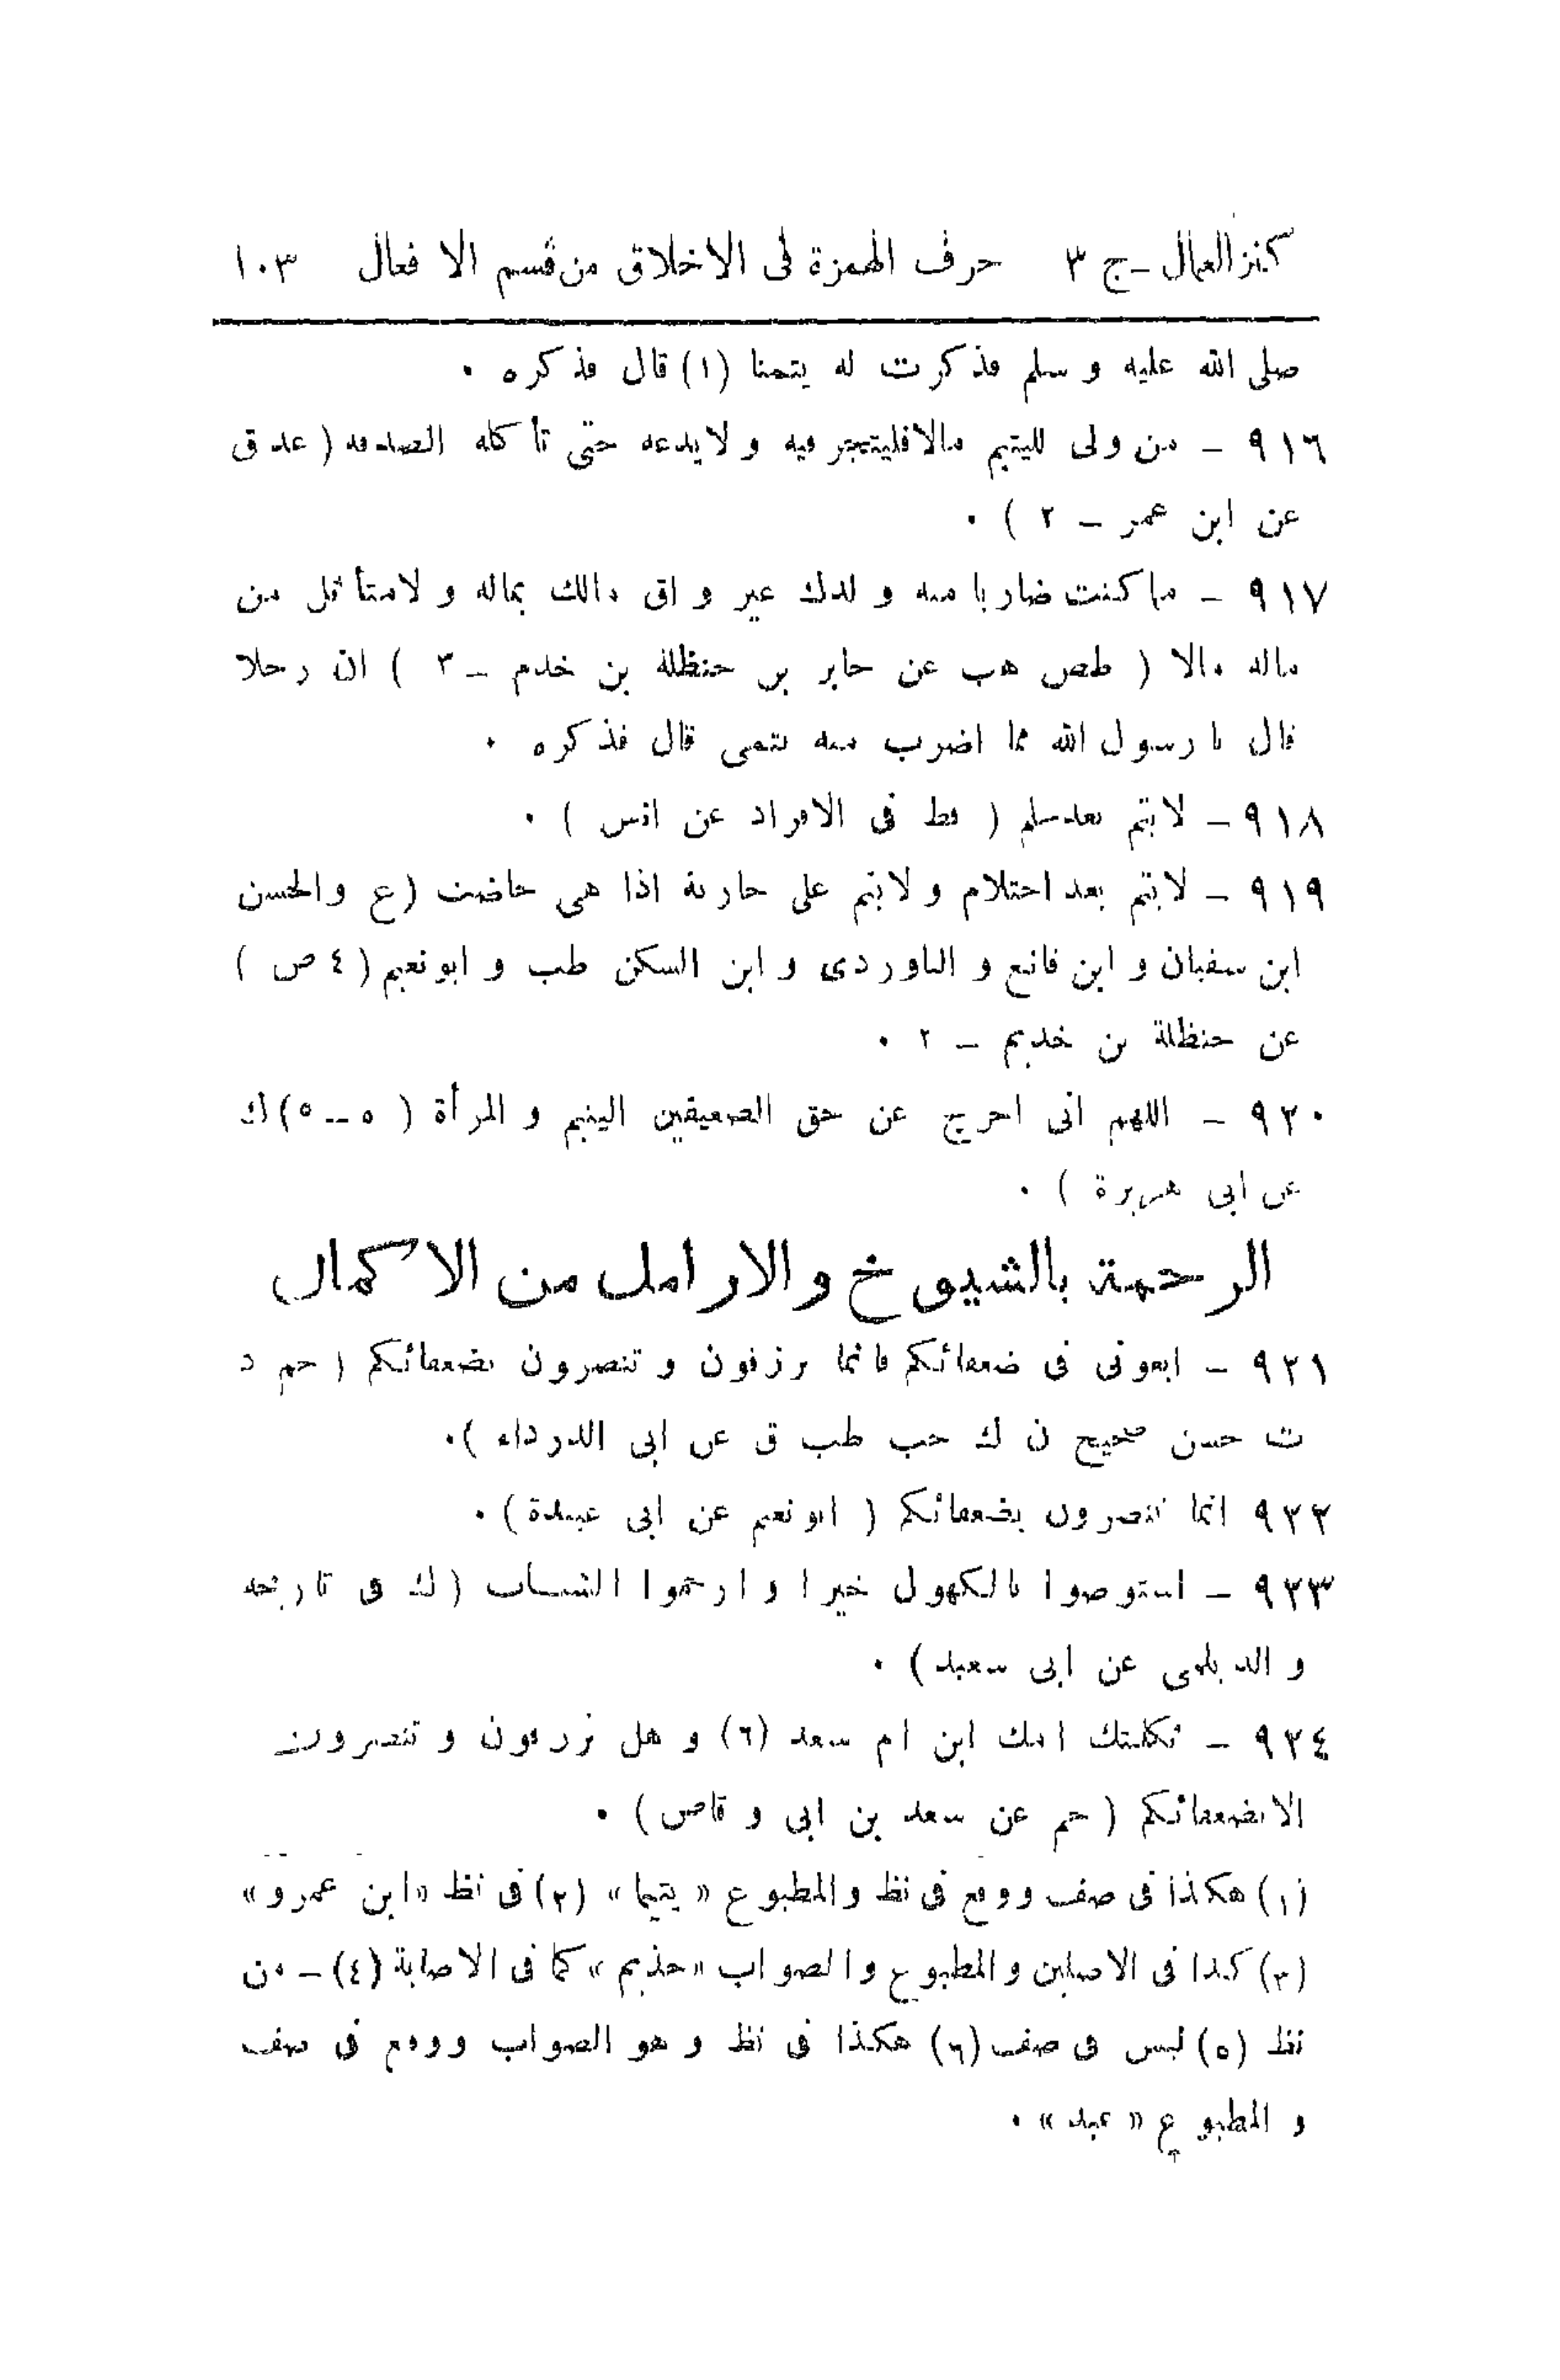 كنز العمال - ج ٣ حرف الهمزة فى الاخلاق من قسم الا فعال ١٠٣
صلى الله عليه و سلم فذكرت له يتمنا (١) قال فذكره .
٩١٦ - من ولى لليتيم مالا فليتجر فيه و لا يدعه حتى تأكله الصدقه ( عد ق
عن ابن عمر - ٢ ) .
٩١٧ - ما كنت ضاربا منه و لدك غير واق مالك بماله و لا متأثل من
ماله مالا ( طص هب عن جابر بن حنظلة بن خدم - ٣ ) ان رجلا
قال يا رسول الله مما اضرب منه يتيمى قال فذكره .
٩١٨ - لا يتم بعد حلم ( قط فى الافراد عن انس ) .
٩١٩ - لا يتم بعد احتلام و لا يتم على جارية اذا هى حاضت (ع والحسن
ابن سفيان و ابن قانع و الباوردى و ابن السكن طب و ابو نعيم (٤ ص )
عن حنظلة بن خديم - ٢ .
٩٢٠ - اللهم انى احرج عن حق الضعيفين اليتيم و المرأة ( ٥ - ٥) ك
عن ابى هريرة ) .
الرحمة بالشيوخ والارامل من الاكمال
٩٢١ - ابغونى فى ضعفائكم فانما ترزقون و تنصرون بضعفائكم ( حم د
ت حسن صحيح ن ك حب طب ق عن ابى الدرداء ).
٩٢٢ انما تنصرون بضعفائكم ( ابو نعيم عن ابى عبيدة ) .
٩٢٣ - استوصوا بالكهول خيرا و ارحموا الشباب (ك فى تاريخه
و الديلمى عن ابى سعيد ) .
٩٢٤ - ثكلتك امك ابن ام سعد (٦) و هل ترزقون و تنصرون
الا بضعفائكم ( حم عن سعد بن ابى وقاص ) .
(١) هكذا فى صف ووقع فى نظ والمطبوع « يتيما » (٢) فى نظ «ابن عمرو»
(٣) كذا فى الاصلين والمطبوع والصواب «حذيم» كما فى الاصابة (٤) - من
نظ (٥) ليس فى صف (٦) هكذا فى نظ و هو الصواب ووقع فى صف
و المطبوع « عبد » .